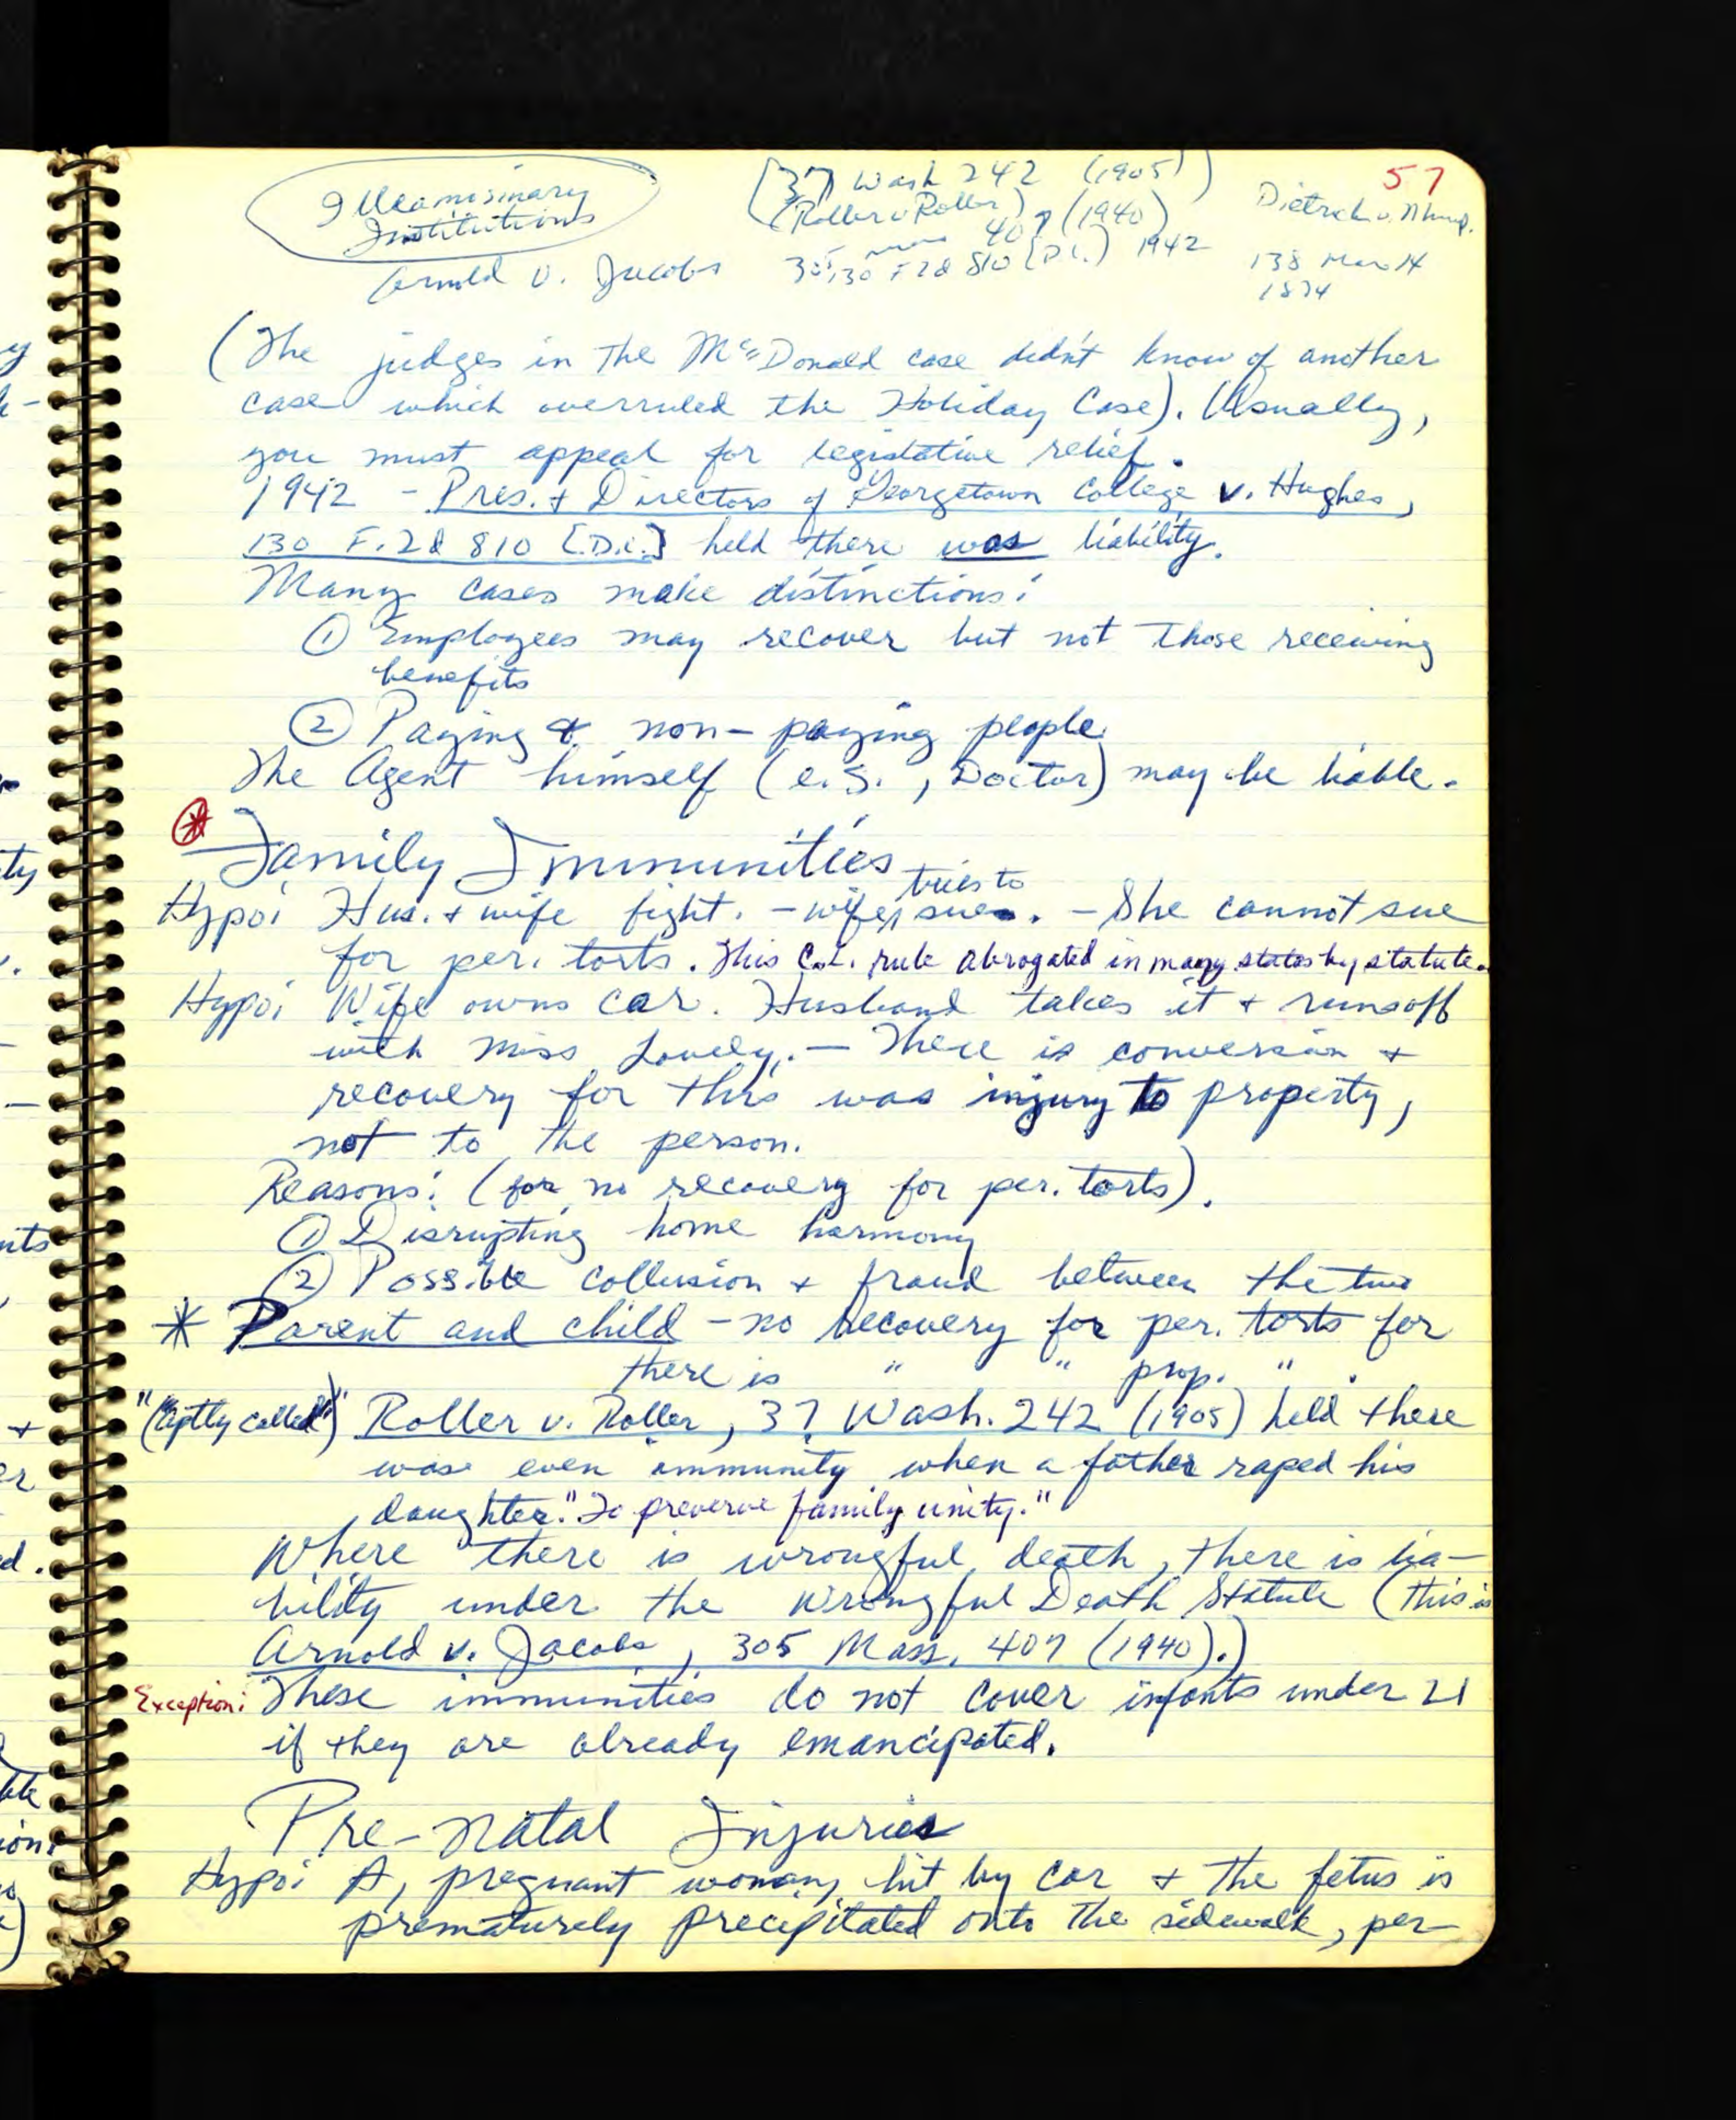 57
Illeamosinary
Institutions
[37 Wash 242 (1905)]
(Roller v Roller)
407 (1940)
Arnold v. Jacobs
130 F 2d 810 (D.C.) 1942
Dietrich v.
138 Mass 14
1884
(The judges in the McDonald case didn't know of another
case which overruled the Holiday Case). (Usually,
you must appeal for legislative relief.
1942 - Pres. + Directors of Georgetown College v. Hughes,
130 F.2d 810 [D.C.] held there was liability.
Many cases make distinctions:
① Employees may recover but not those receiving
benefits
② Paying & non-paying people
The Agent himself (e.g., Doctor) may be liable.
⊛ Family Immunities
Hypo: Hus. + wife fight. - wife tries to sue. - She cannot sue
for per. torts. This C.L. rule abrogated in many states by statute.
Hypo: Wife owns car. Husband takes it + runs off
with Miss Lovely. - There is conversion +
recovery for this was injury to property,
not to the person.
Reasons: (for no recovery for per. torts).
① Disrupting home harmony
② Possible collusion + fraud between the two
* Parent and child - no recovery for per. torts for
there is " " prop. " .
"(Aptly called)" Roller v. Roller, 37 Wash. 242 (1905) held there
was even immunity when a father raped his
daughter. "To preserve family unity."
Where there is wrongful death, there is lia-
bility under the Wrongful Death Statute (this is
Arnold v. Jacobs, 305 Mass. 407 (1940).)
Exception: These immunities do not cover infants under 21
if they are already emancipated.
Pre-natal Injuries
Hypo: A, pregnant woman, hit by car + the fetus is
prematurely precipitated onto the sidewalk, per-